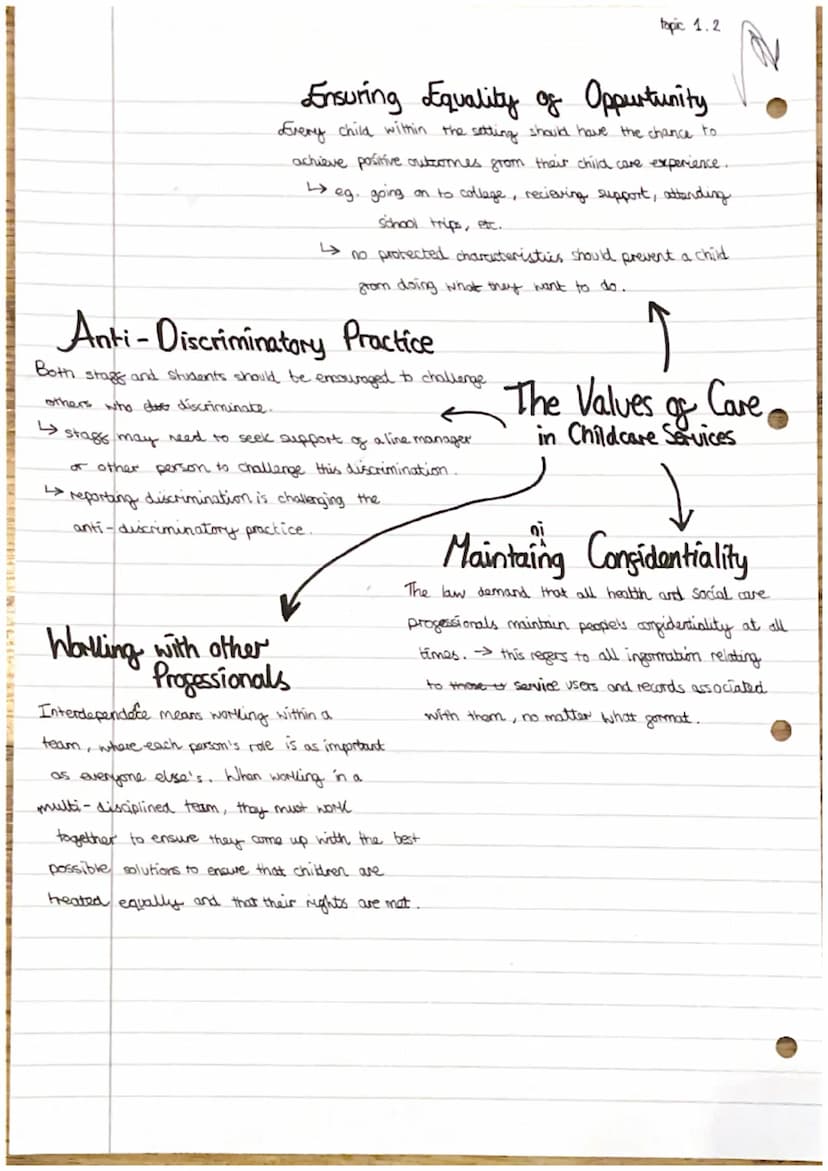 topic 1.2
Ensuring Equality of Oppurtunity
Every child within the setting should have the chance to
achieve positive outcomes from their child care experience.
↳ eg. going on to collage, recieving support, attending
school trips, etc.
↳ no protected characteristics should prevent a child
from doing what they want to do.
Anti-Discriminatory Practice
Both staff and students should be encouraged to challenge
others who discriminate.
↳ staff may need to seek support of a line manager
or other person to challenge this discrimination.
↳ reporting discrimination is challenging the
anti-discriminatory practice.
The Values of Care
in Childcare Services
Maintaining Confidentiality
The law demand that all health and social care
professionals maintain people's confidentiality at all
times. → this refers to all information relating
to service users and records associated
with them, no matter what format.
Working with other
Professionals
means working within a
team, where each person's role is as important
as everyone else's. When working in a
multi-disciplined team, they must work
together to ensure they come up with the best
possible solutions to ensure that children are
treated equally and that their rights are met.